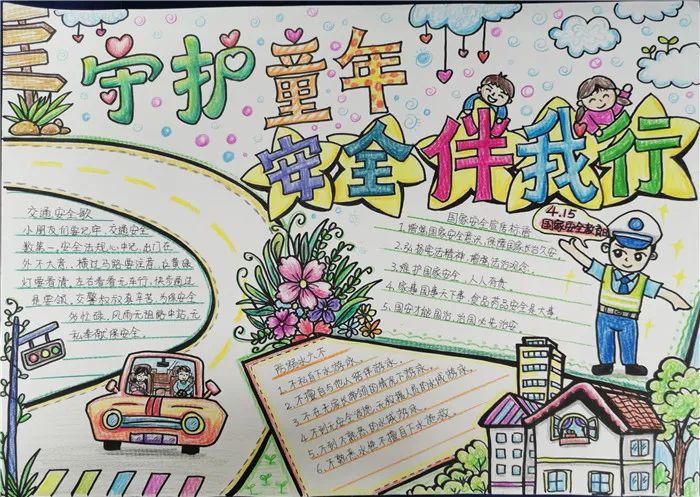 守护童年
安全伴我行
交通安全歌
小朋友们要记牢,交通安全
数第一,安全法规心中记,出门在
外不大意,横过马路要注意,红黄绿
灯要看清,左右看看无车行,快步通过
是要领,交警叔叔真辛苦,为保安全
为忙碌,风雨无阻路中站,无
私奉献保安全。
国家安全宣传标语
1、增强国家安全意识,保障国家长治久安
2、弘扬宪法精神,增强法治观念。
3、维护国家安全,人人有责。
4、家事国事天下事,食品药品安全是大事
5、国安才能国治,治国必先治安
4.15
国家安全教育
防溺水六不
1、不私自下水游泳
2、不擅自与他人结伴游泳。
3、不在无家长带领的情况下游泳。
4、不到无安全设施、无救援人员的水域游泳。
5、不到不熟悉的水域游泳
6、不熟悉水性不擅自下水施救。